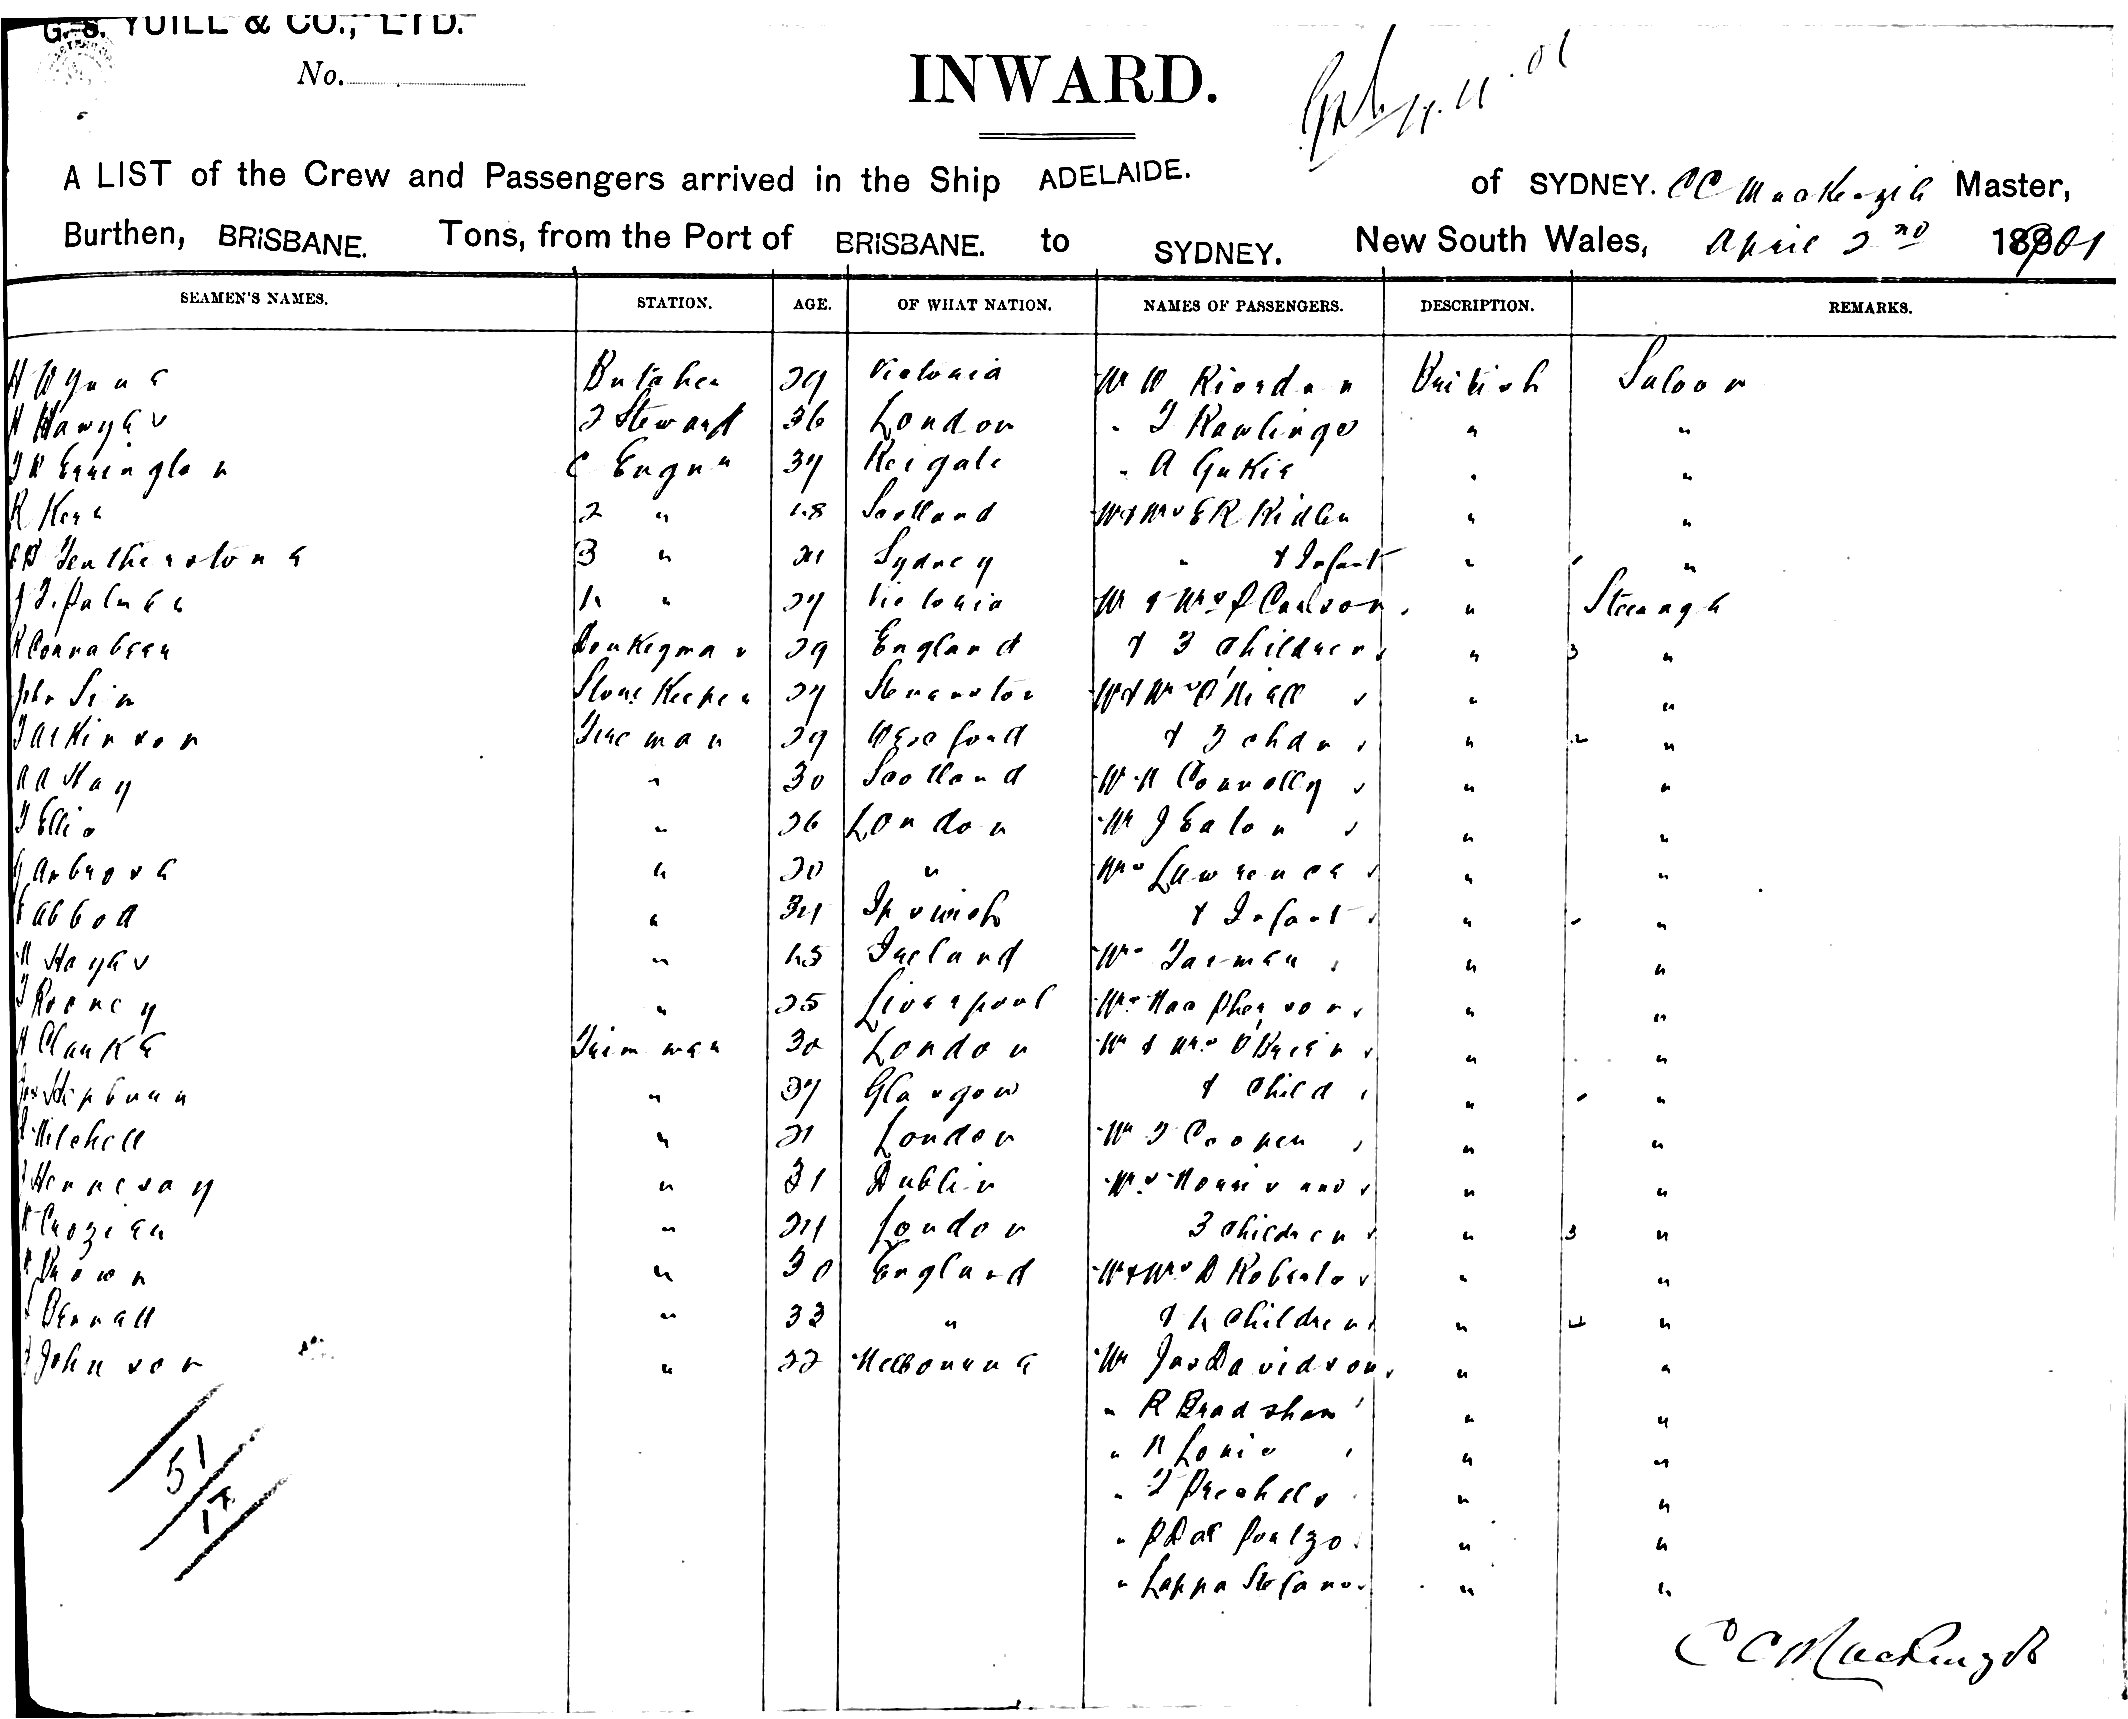 G. S. YUILL & CO., LTD.
No.
INWARD.
A LIST of the Crew and Passengers arrived in the Ship ADELAIDE. of SYDNEY. C C Mackenzie Master,
Burthen, BRISBANE. Tons, from the Port of BRISBANE. to SYDNEY. New South Wales, April 2nd 1901
SEAMEN'S NAMES. STATION. AGE. OF WHAT NATION. NAMES OF PASSENGERS. DESCRIPTION. REMARKS.
Butcher 29 Victoria Mr W Riordan British Saloon
2 Steward 36 London " T Rawlings " "
C Engnr 37 Reigate " A " "
R Kerr 2 " 48 Scotland Mr & Mrs E R Ridler " "
Featherstone 3 " 24 Sydney " & Infant " "
J F. Palmer 4 " 27 Victoria Mr & Mrs P Carlson " Steerage
R Connabeer Donkeyman 29 England & 3 Children " 3 "
John Sim Store Keeper 27 Stevenston Mr & Mrs O'Neill " "
T Atkinson Fireman 29 Wexford & 3 chdn " 2 "
A A Hay " 30 Scotland Mr H Connolly " "
T Ellis " 26 London Mr J Eaton " "
G Ambrose " 20 " Mrs Lawrence " "
E Abbod " 34 Ipswich & Infant " "
M Hayes " 45 Ireland Mrs " "
T Rooney " 25 Liverpool Mrs MacPherson " "
H Clarke Trimmer 30 London Mr & Mrs O'Brien " "
Jas Hepburn " 27 Glasgow & Child " "
Mitchell " 21 London Mr T Cooper " "
Hennessy " 31 Dublin Mrs Morris and " "
Crozier " 24 London 3 Children " 3 "
Brown " 30 England Mr & Mrs D Roberts " "
Bennett " 33 " & 4 Children " 4 "
Johnson " 22 Melbourne Mr Jas Davidson " "
" R Bradshaw " "
" H Louis " "
51 " T " "
14 " P Dal " "
" Lappa Stefano " "
C C Mackenzie